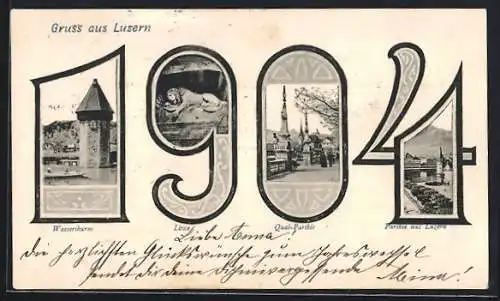 Gruss aus Luzern
1904
Wasserthurm
Löwe
Quai-Parthie
Parthie aus Luzern
Liebe Anna!
Die herzlichsten Glückswünsche zum Jahreswechsel
sendet dir deine Dichnievergessende Meina!